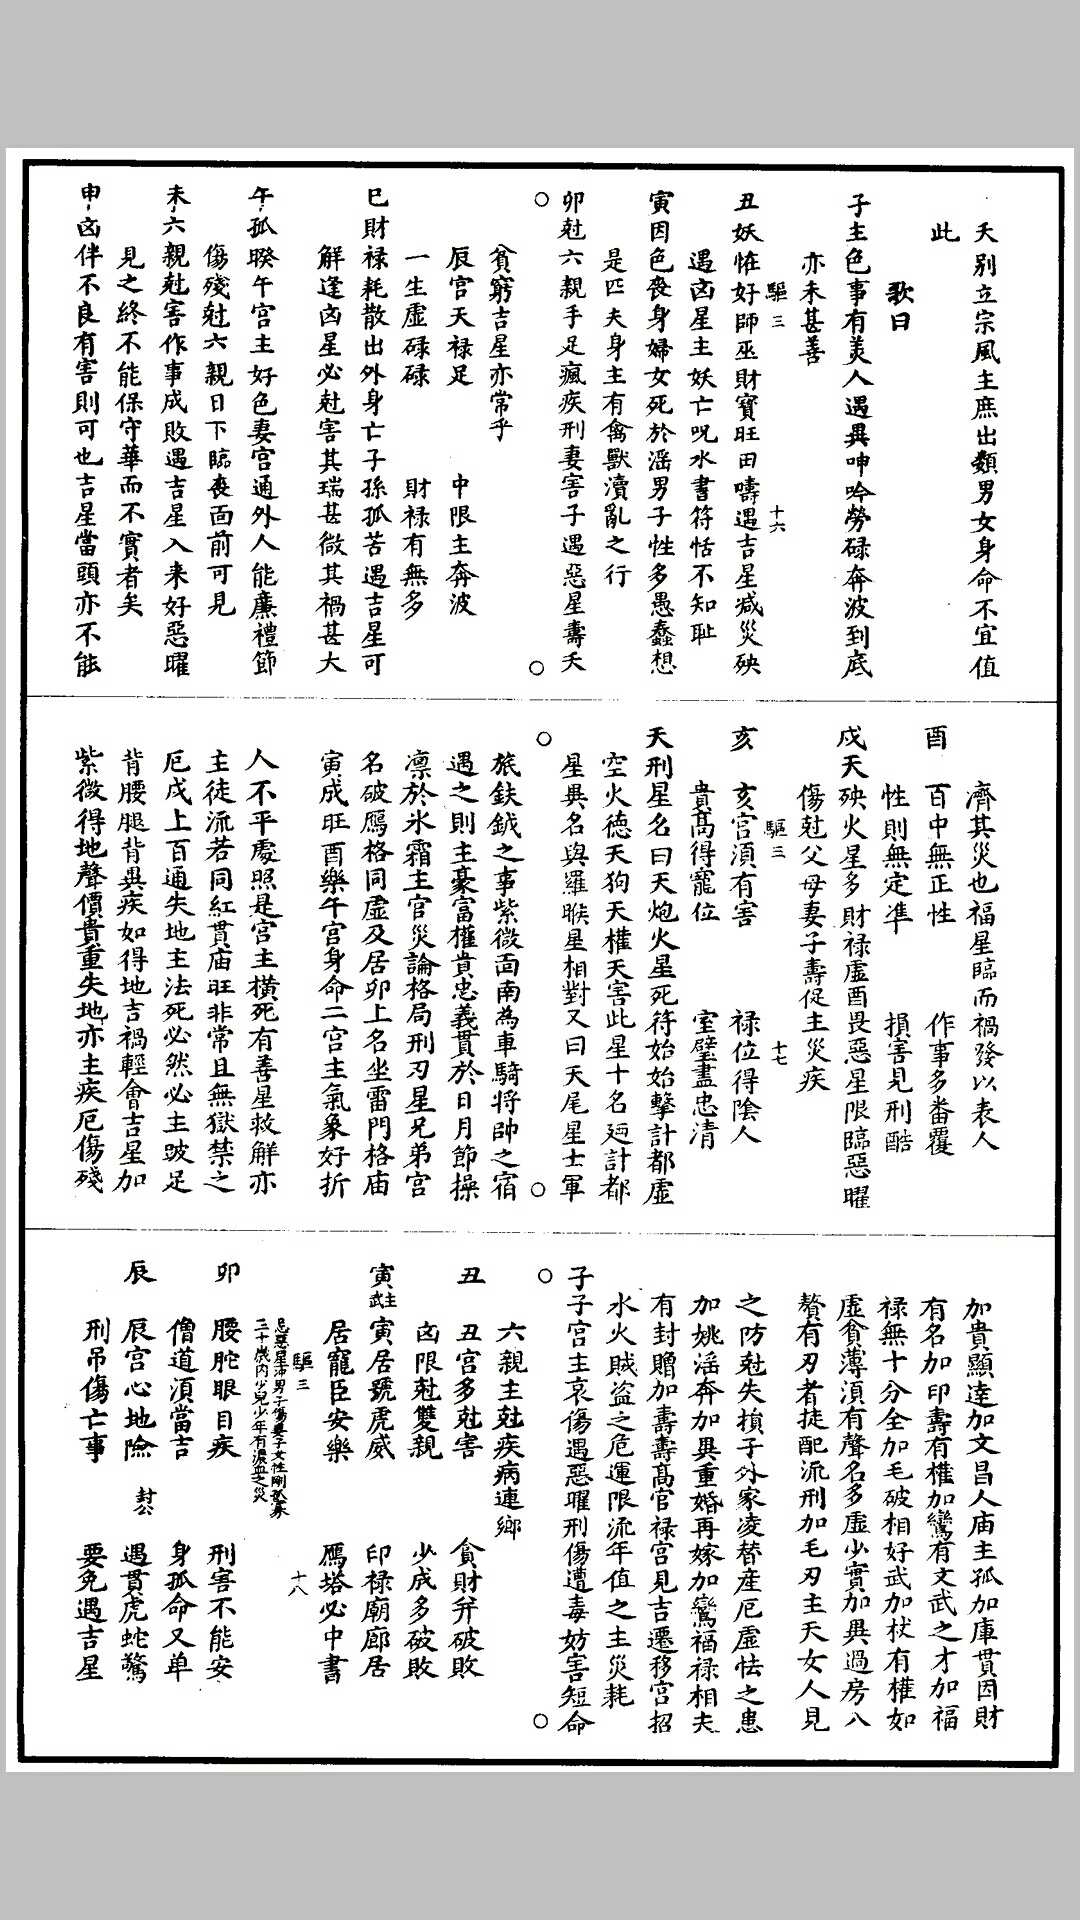 天别立宗風主庶出類男女身命不宜值
此
歌曰
子主色事有美人遇異呻吟勞碌奔波到底
亦未甚善
驅三 十六
丑妖恠好師巫財寶旺田疇遇吉星减災殃
遇凶星主妖亡呪水書符恬不知耻
寅因色丧身婦女死於淫男子性多愚蠢想
是匹夫身主有禽獸瀆亂之行
卯尅六親手足瘋疾刑妻害子遇惡星壽夭
貧窮吉星亦常乎
辰宫天禄足 中限主奔波
一生虚碌碌 財禄有無多
巳財禄耗散出外身亡子孫孤苦遇吉星可
解逢凶星必尅害其瑞甚微其禍甚大
午孤睽午宫主好色妻宫通外人能廉禮節
傷殘尅六親日下臨丧面前可見
未六親尅害作事成敗遇吉星入来好惡曜
見之終不能保守華而不實者矣
申凶伴不良有害則可也吉星當頭亦不能
濟其災也福星臨而禍發以表人
酉 百中無正性 作事多畨覆
性則無定凖 損害見刑酷
戍天殃火星多財禄虚酉畏惡星限臨惡曜
傷尅父母妻子壽促主災疾
驅三 十七
亥 亥宫湏有害 禄位得陰人
貴髙得寵位 室璧盡忠清
天刑星名曰天炮火星死符始始擊計都虚
空火德天狗天權天害此星十名廼計都
星異名與羅睺星相對又曰天尾星士軍
旅鈇鉞之事紫微面南為車騎將帥之宿
遇之則主豪富權貴忠義貫於日月節操
凛於氷霜主官災論格局刑刃星兄弟宫
名破鴈格同虚及居卯上名坐雷門格庙
寅戍旺酉樂午宫身命二宫主氣象好折
人不平處照是宫主横死有善星救解亦
主徒流若同紅貫庙旺非常且無獄禁之
厄戍上百通失地主法死必然必主跛足
背腰腿背異疾如得地吉禍輕會吉星加
紫微得地聲價貴重失地亦主疾厄傷殘
加貴顯逹加文昌人庙主孤加庫貫因財
有名加印壽有權加鸞有文武之才加福
禄無十分全加毛破相好武加杖有權如
虚貧薄湏有聲名多虚少實加異過房入
贅有刃者徒配流刑加毛刃主夭女人見
之防尅失損子外家凌替産厄虚怯之患
加姚淫奔加異重婚再嫁加鸞福禄相夫
有封贈加壽壽髙官禄宫見吉遷移宫招
水火賊盗之危運限流年值之主災耗
子子宫主哀傷遇惡曜刑傷遭毒妨害短命
六親主尅疾病連鄉
丑 丑宫多尅害 貪財弁破敗
凶限尅雙親 少成多破敗
寅主武寅居號虎威 印禄廟廊居
居寵臣安樂 鴈塔必中書
驅三 十八
忌惡星沖男子傷妻子女性剛孤寡
二十歲内少兒少年有濃血之災
卯 腰䏢眼目疾 刑害不能安
僧道湏當吉 身孤命又单
辰 辰宫心地險 封公 遇貫虎蛇驚
刑吊傷亡事 要免遇吉星